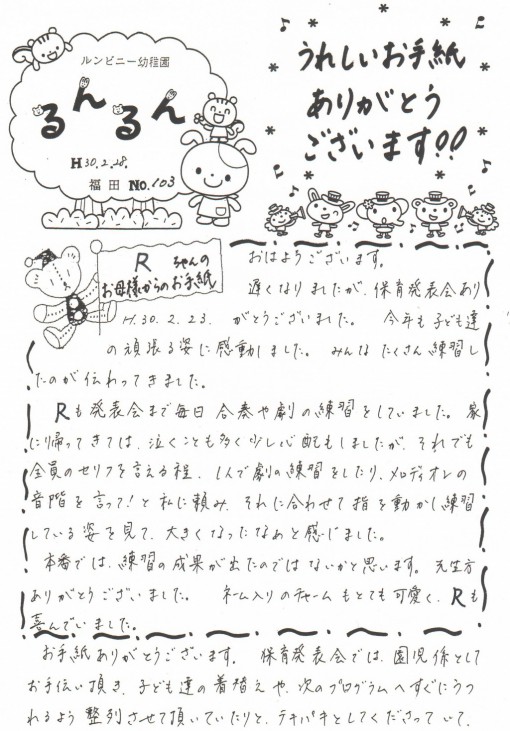 ルンビニー幼稚園
るんるん
H30.2.28.
福田 No.103
うれしいお手紙
ありがとう
ございます!!
R ちゃんの
お母様からのお手紙
H.30.2.23.
おはようございます。
遅くなりましたが、保育発表会あり
がとうございました。 今年も子ども達
の頑張る姿に感動しました。 みんなたくさん練習し
たのが伝わってきました。
Rも発表会まで毎日合奏や劇の練習をしていました。家
に帰ってきては、泣くことも多く少し心配もしましたが、それでも
全員のセリフを言える程、1人で劇の練習をしたり、メロディオンの
音階を言って!と私に頼み、それに合わせて指を動かし練習
している姿を見て、大きくなったなぁと感じました。
本番では、練習の成果が出たのではないかと思います。先生方
ありがとうございました。 ネーム入りのチャームもとても可愛く、Rも
喜んでいました。
お手紙ありがとうございます。 保育発表会では、園児係として
お手伝い頂き、子ども達の着替えや、次のプログラムへすぐにうつ
れるよう整列させて頂いていたりと、テキパキとしてくださっていて、